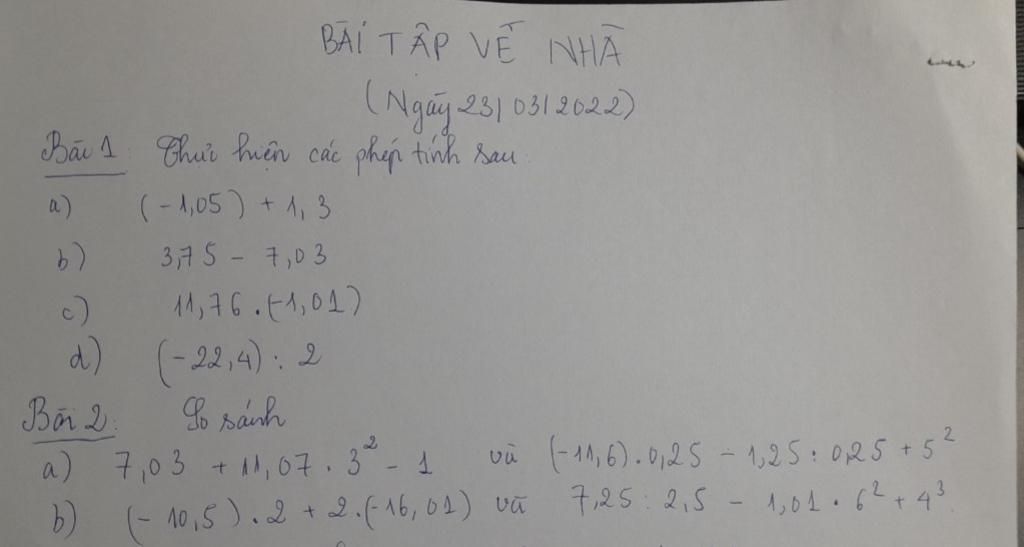 BÀI TẬP VỀ NHÀ
(Ngày 23/03/2022)
Bài 1: Thực hiện các phép tính sau:
a) (-1,05) + 1,3
b) 3,75 - 7,03
c) 11,76 . (-1,01)
d) (-22,4) : 2
Bài 2: So sánh
a) 7,03 + 11,07 . 3² - 1 và (-11,6) . 0,25 - 1,25 : 0,25 + 5²
b) (-10,5) . 2 + 2 . (-16,01) và 7,25 : 2,5 - 1,01 . 6² + 4³